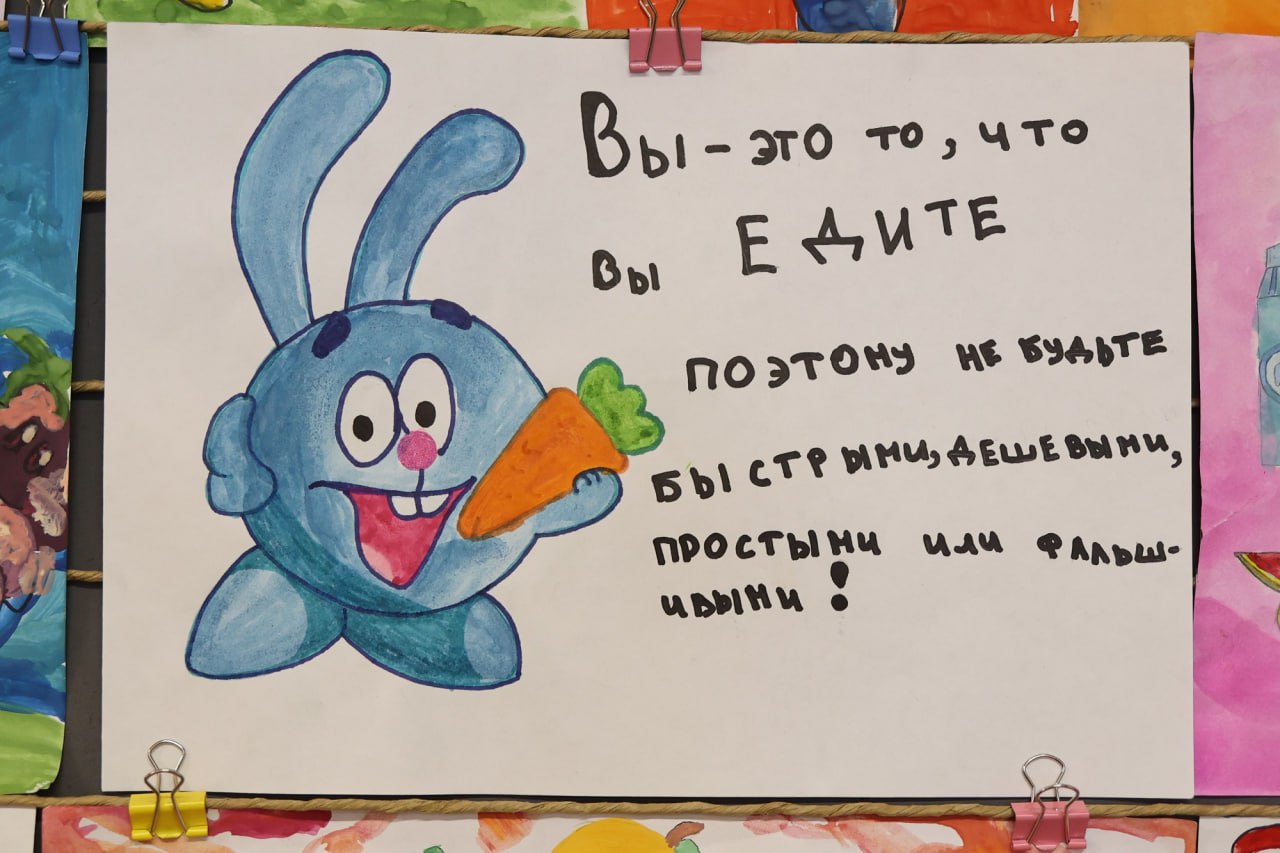 Вы - это то, что
вы ЕДИТЕ
поэтому не будьте
быстрыми, дешевыми,
простыми или фальш-
ивыми!